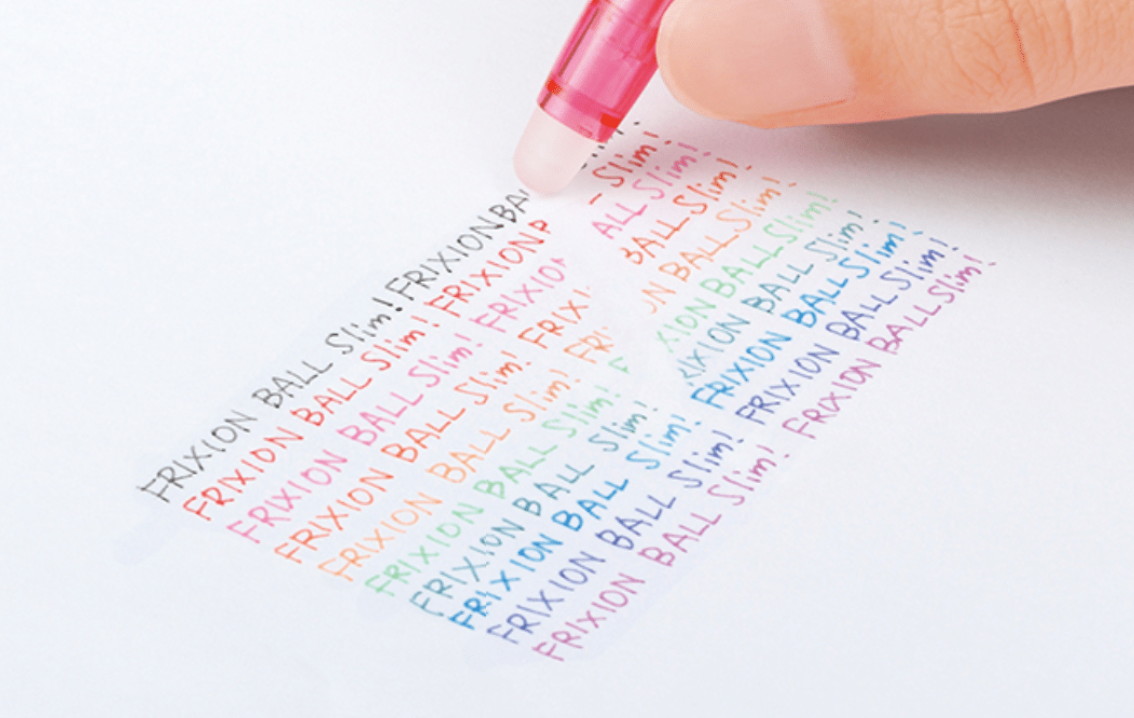 FRIXION BALL Slim! FRIXION BA
FRIXION BALL Slim! FRIXION Slim!
FRIXION BALL Slim! FRIXIO ALL Slim!
FRIXION BALL Slim! FRIX BALL Slim!
FRIXION BALL Slim! FR ON BALL Slim!
FRIXION BALL Slim! F XION BALL Slim!
FRIXION BALL Slim! RIXION BALL Slim!
FRIXION BALL Slim! FRIXION BALL Slim!
FRIXION BALL Slim! FRIXION BALL Slim!
FRIXION BALL Slim! FRIXION BALL Slim!